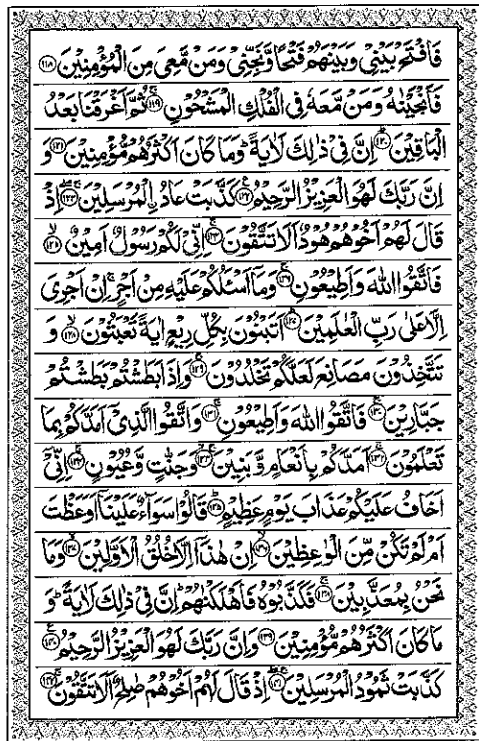 فَافْتَحْ بَيْنِيْ وَبَيْنَهُمْ فَتْحًا وَّنَجِّنِيْ وَمَنْ مَّعِيَ مِنَ الْمُؤْمِنِيْنَ ﴿۱۱۸﴾
فَاَنْجَيْنٰهُ وَمَنْ مَّعَهٗ فِى الْفُلْكِ الْمَشْحُوْنِ ﴿۱۱۹﴾ ثُمَّ اَغْرَقْنَا بَعْدُ
الْبَاقِيْنَ ﴿۱۲۰﴾ اِنَّ فِيْ ذٰلِكَ لَاٰيَةً ؕ وَمَا كَانَ اَكْثَرُهُمْ مُّؤْمِنِيْنَ ﴿۱۲۱﴾ وَ
اِنَّ رَبَّكَ لَهُوَ الْعَزِيْزُ الرَّحِيْمُ ﴿۱۲۲﴾ كَذَّبَتْ عَادُ ِۨالْمُرْسَلِيْنَ ﴿۱۲۳﴾ اِذْ
قَالَ لَهُمْ اَخُوْهُمْ هُوْدٌ اَلَا تَتَّقُوْنَ ﴿۱۲۴﴾ اِنِّيْ لَكُمْ رَسُوْلٌ اَمِيْنٌ ﴿۱۲۵﴾
فَاتَّقُوا اللّٰهَ وَاَطِيْعُوْنِ ﴿۱۲۶﴾ وَمَاۤ اَسْـَٔلُكُمْ عَلَيْهِ مِنْ اَجْرٍ ۚ اِنْ اَجْرِيَ
اِلَّا عَلٰى رَبِّ الْعٰلَمِيْنَ ﴿۱۲۷﴾ اَتَبْنُوْنَ بِكُلِّ رِيْعٍ اٰيَةً تَعْبَثُوْنَ ﴿۱۲۸﴾ وَ
تَتَّخِذُوْنَ مَصَانِعَ لَعَلَّكُمْ تَخْلُدُوْنَ ﴿۱۲۹﴾ وَاِذَا بَطَشْتُمْ بَطَشْتُمْ
جَبَّارِيْنَ ﴿۱۳۰﴾ فَاتَّقُوا اللّٰهَ وَاَطِيْعُوْنِ ﴿۱۳۱﴾ وَاتَّقُوا الَّذِيْۤ اَمَدَّكُمْ بِمَا
تَعْلَمُوْنَ ﴿۱۳۲﴾ اَمَدَّكُمْ بِاَنْعَامٍ وَّبَنِيْنَ ﴿۱۳۳﴾ وَجَنّٰتٍ وَّعُيُوْنٍ ﴿۱۳۴﴾ اِنِّيْۤ
اَخَافُ عَلَيْكُمْ عَذَابَ يَوْمٍ عَظِيْمٍ ﴿۱۳۵﴾ قَالُوْا سَوَآءٌ عَلَيْنَاۤ اَوَعَظْتَ
اَمْ لَمْ تَكُنْ مِّنَ الْوٰعِظِيْنَ ﴿۱۳۶﴾ اِنْ هٰذَاۤ اِلَّا خُلُقُ الْاَوَّلِيْنَ ﴿۱۳۷﴾ وَمَا
نَحْنُ بِمُعَذَّبِيْنَ ﴿۱۳۸﴾ فَكَذَّبُوْهُ فَاَهْلَكْنٰهُمْ ؕ اِنَّ فِيْ ذٰلِكَ لَاٰيَةً ؕ وَ
مَا كَانَ اَكْثَرُهُمْ مُّؤْمِنِيْنَ ﴿۱۳۹﴾ وَاِنَّ رَبَّكَ لَهُوَ الْعَزِيْزُ الرَّحِيْمُ ﴿۱۴۰﴾
كَذَّبَتْ ثَمُوْدُ الْمُرْسَلِيْنَ ﴿۱۴۱﴾ اِذْ قَالَ لَهُمْ اَخُوْهُمْ صٰلِحٌ اَلَا تَتَّقُوْنَ ﴿۱۴۲﴾